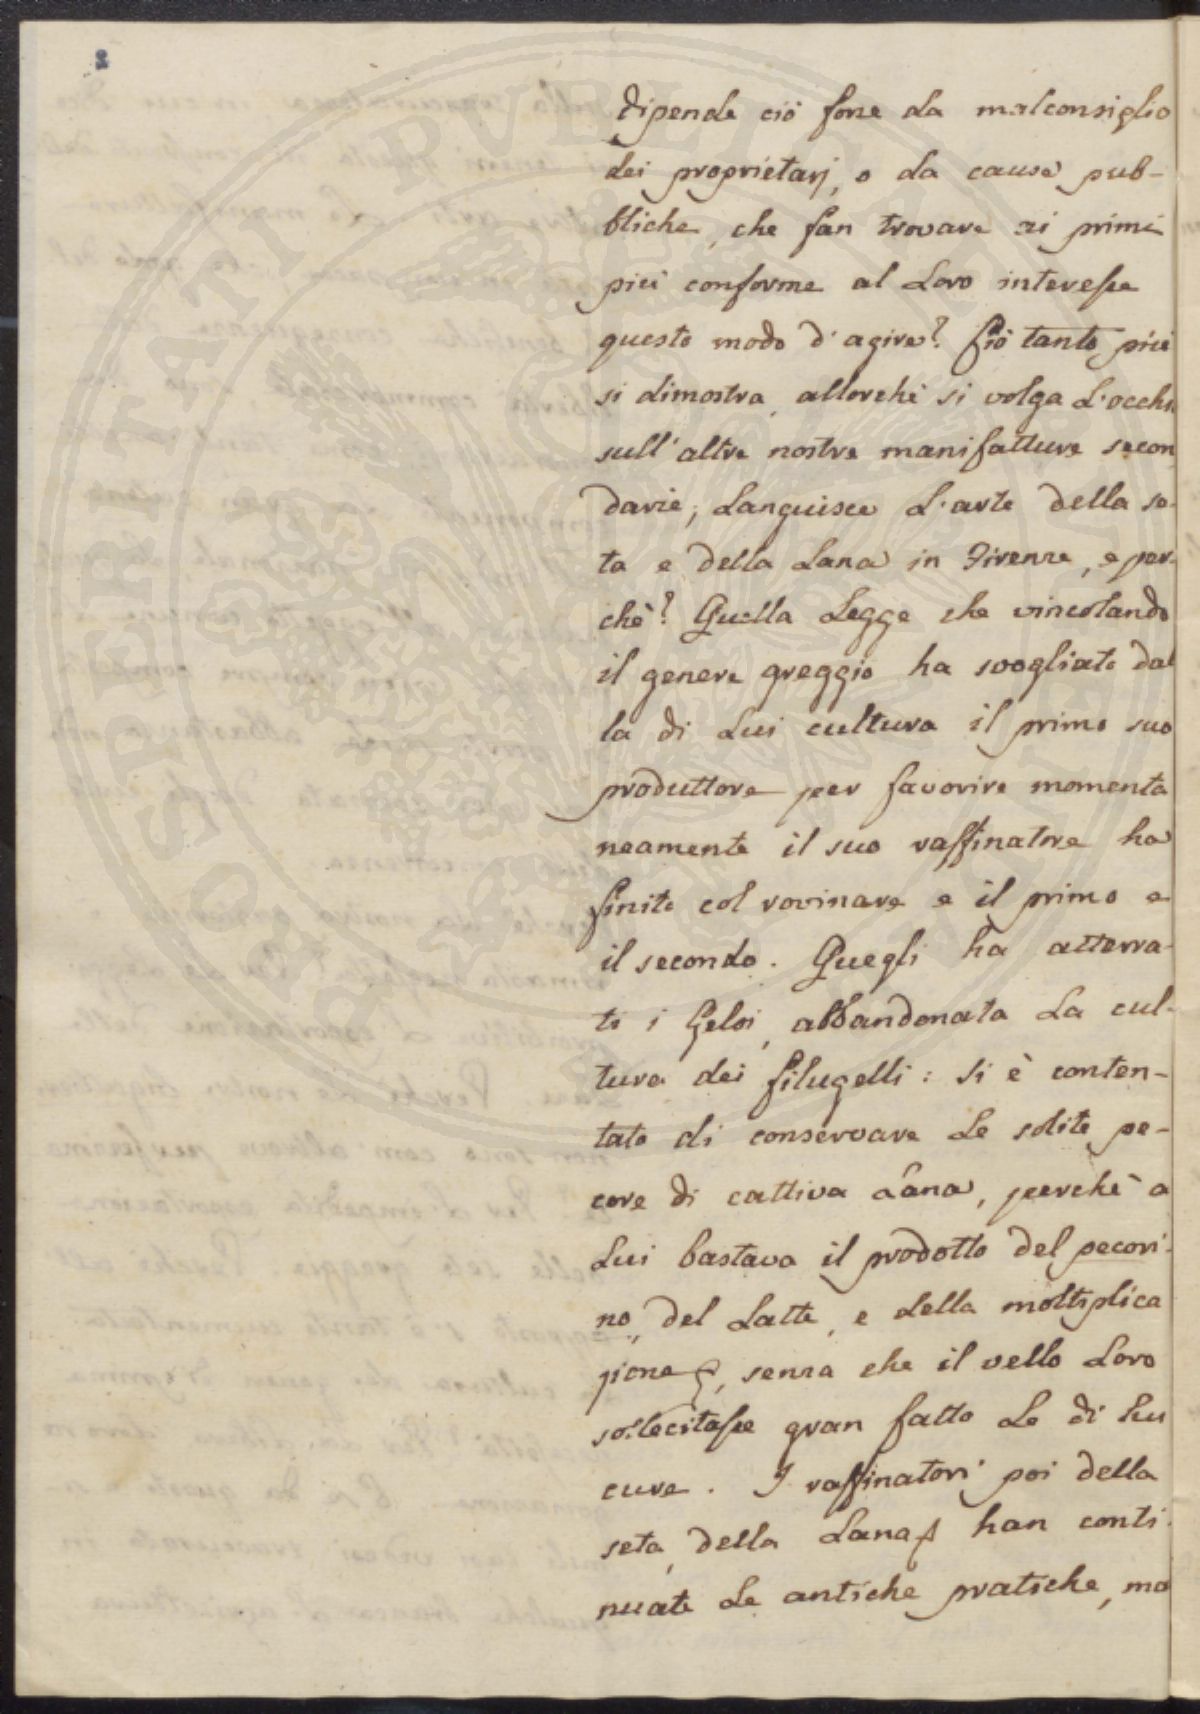 2
dipende ciò forse da malconsiglio
dei proprietarj, o da cause pub-
bliche, che fan trovare ai primi
più conforme al Loro interesse
questo modo d'agire? Ciò tanto più
si dimostra, allorchè si volga L'occhio
sull'altre nostre manifatture secon
darie; Languisce L'arte della se-
ta e della Lana in Firenze, e per-
chè? Quella Legge che vincolando
il genere greggio ha svogliato dal
la di Lui cultura il primo suo
produttore per favorire momenta
neamente il suo raffinatore ha
finito col rovinare e il primo e
il secondo. Quegli ha atterra-
ti i Gelsi, abbandonata La cul-
tura dei filugelli: si è conten-
tato di conservare Le solite pe-
core di cattiva Lana, perchè a
Lui bastava il prodotto del pecori-
no, del Latte, e della moltiplica
zione, senza che il vello Loro
sollecitasse gran fatto Le di Lui
cure. I raffinatori poi della
seta, della Lana han conti
nuate Le antiche pratiche, ma
PROSPERITATI PVBLICAE